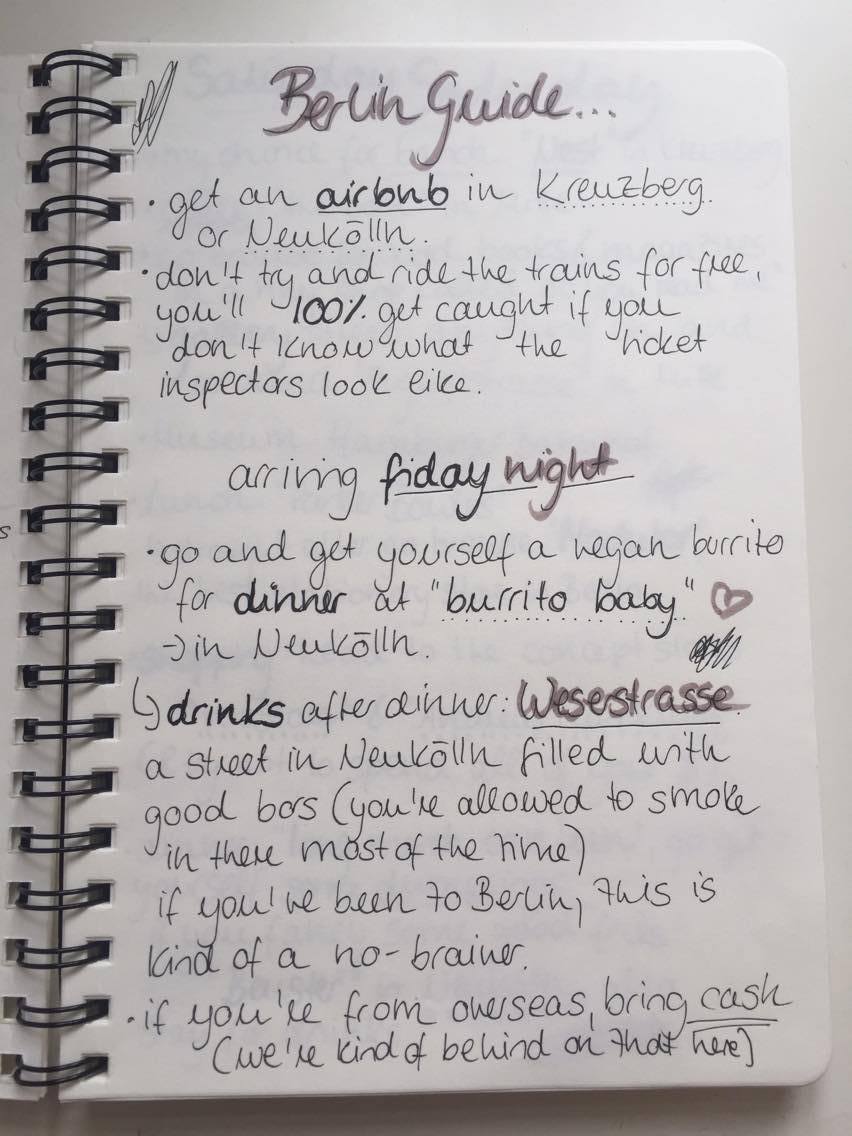 Berlin Guide...
• get an airbnb in Kreuzberg.
or Neukölln.
• don't try and ride the trains for free,
you'll 100% get caught if you
don't know what the ticket
inspectors look like.
arriving friday night
• go and get yourself a vegan burrito
for dinner at "burrito baby" ♡
→ in Neukölln.
↳ drinks after dinner: Weserstrasse.
a street in Neukölln filled with
good bars (you're allowed to smoke
in there most of the time)
if you've been to Berlin, this is
kind of a no-brainer.
• if you're from overseas, bring cash
(we're kind of behind on that here)